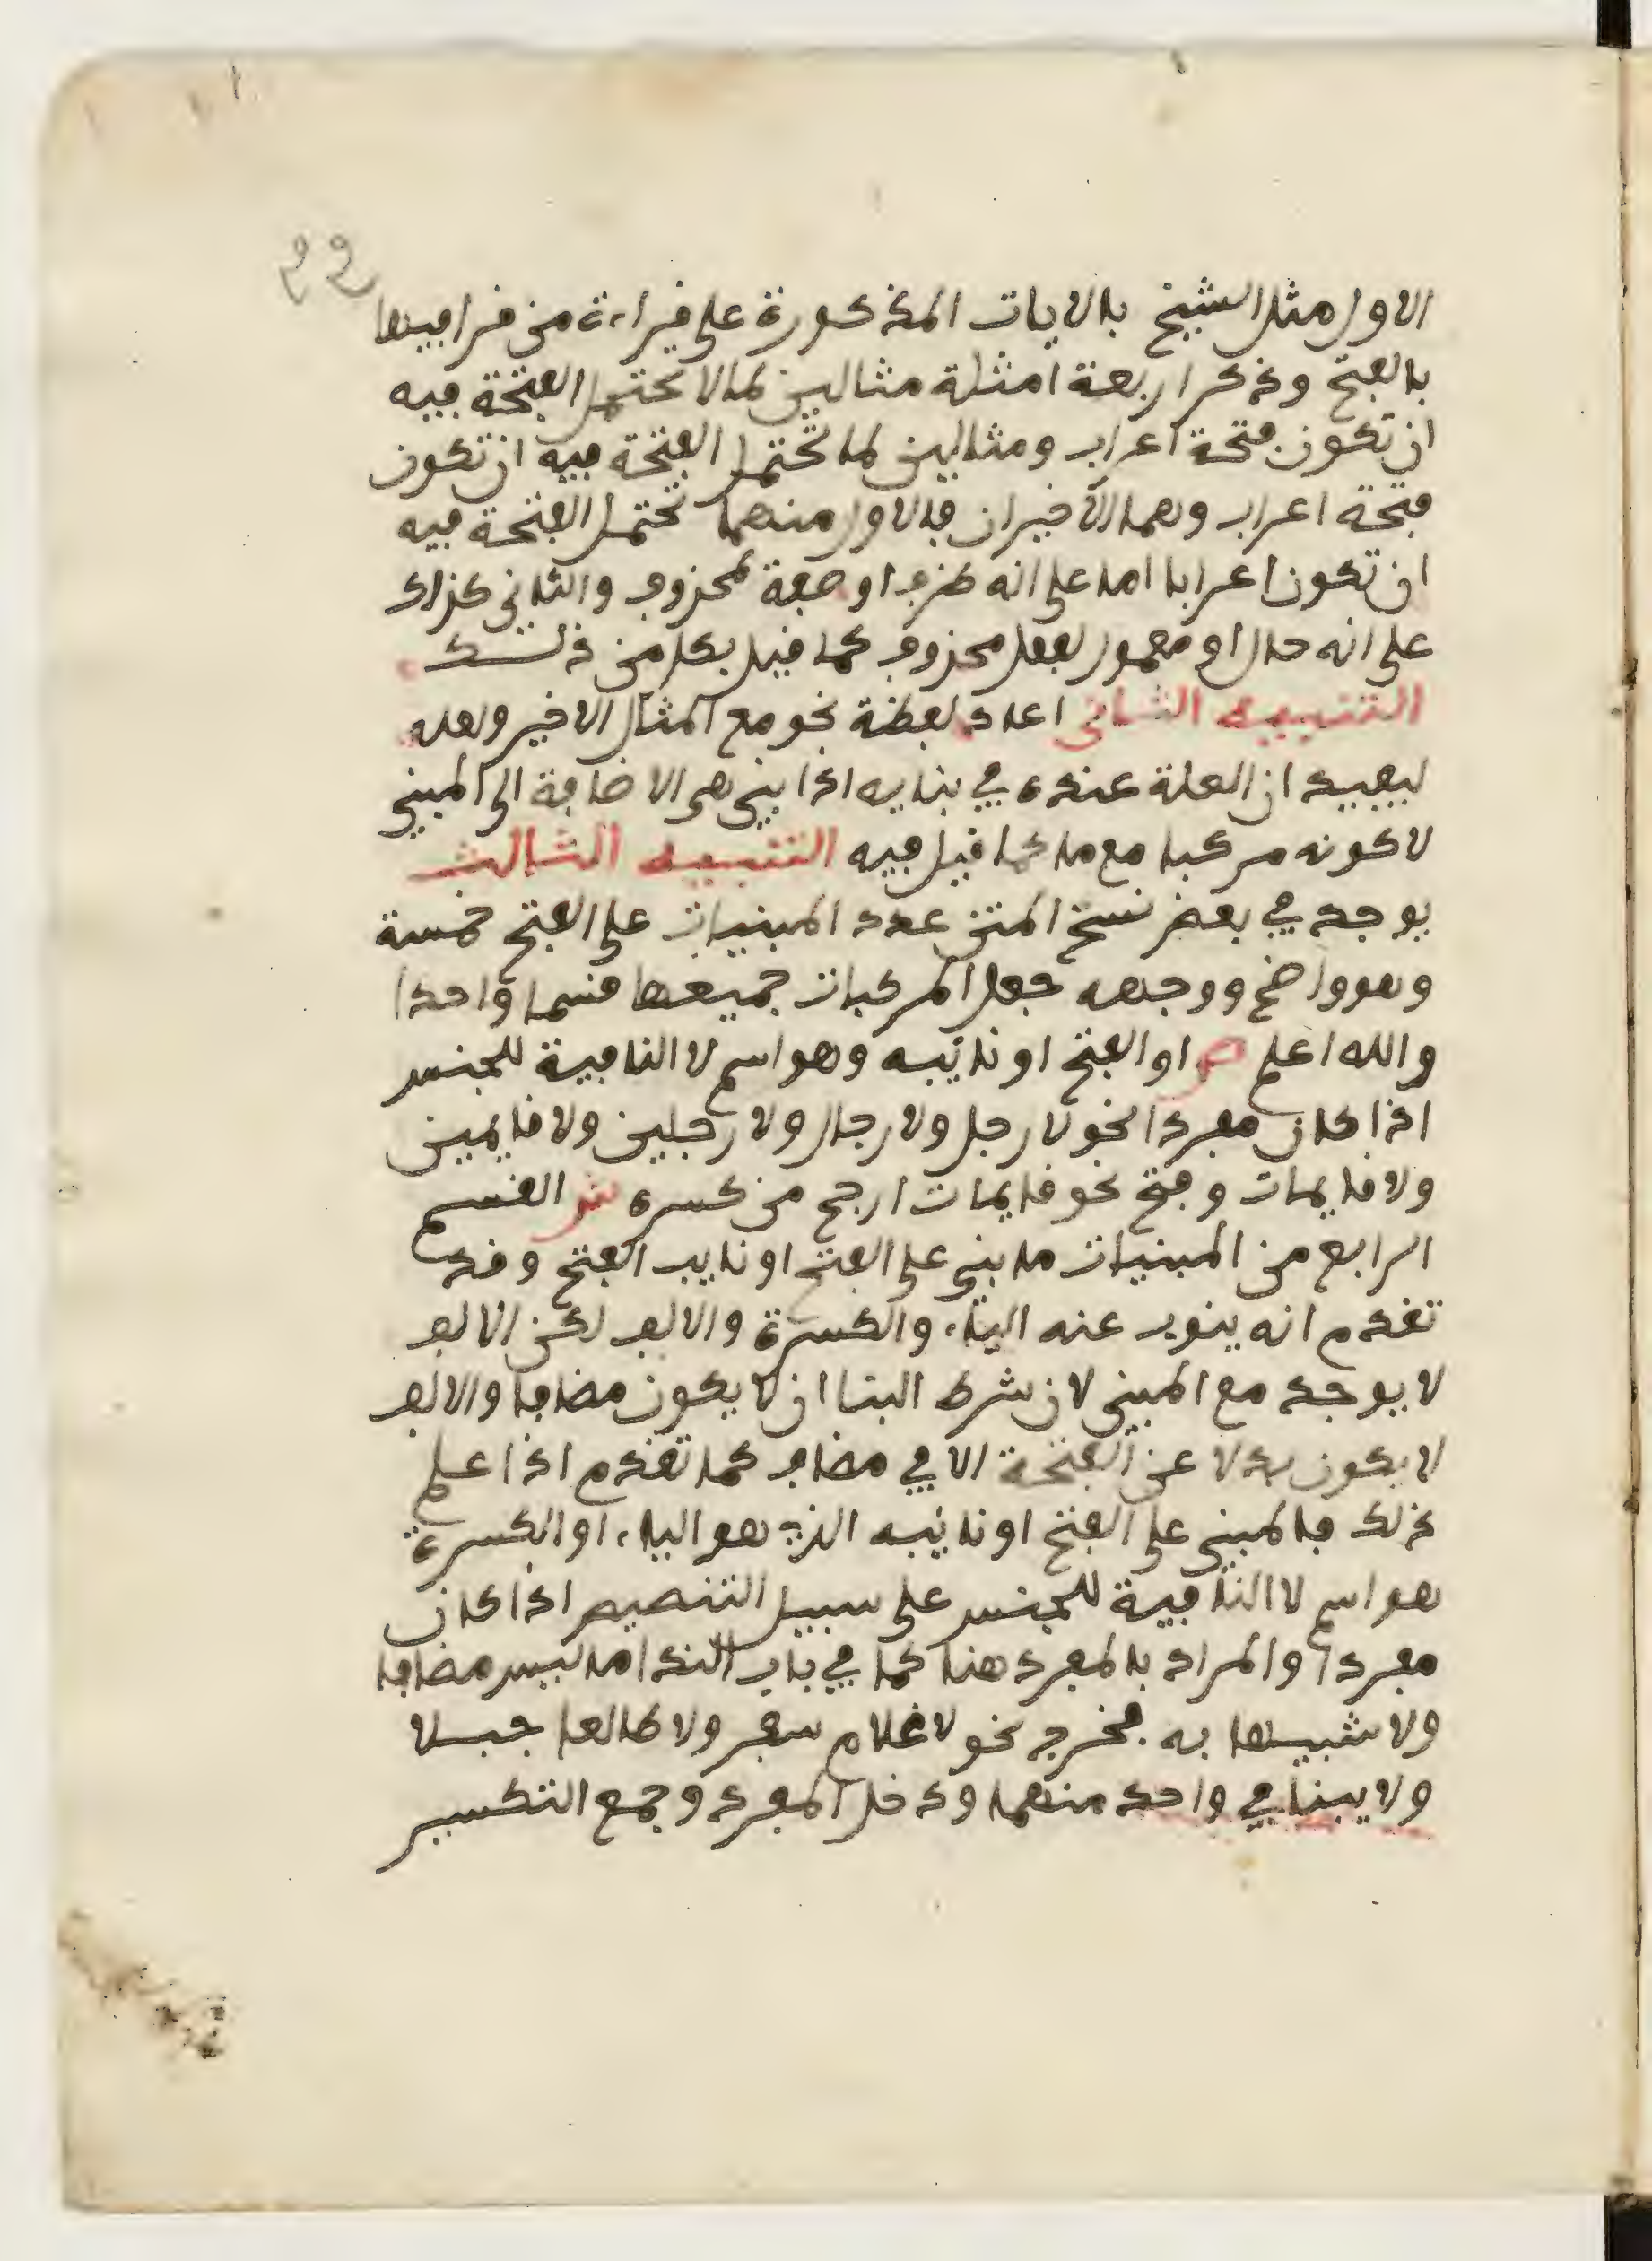 ٩٩
الاول مثل الشيخ بالايات المذكورة على قراءة من قرا فيها
بالفتح وذكر اربعة امثلة مثالين لما لا تحتمل الفتحة فيه
ان تكون فتحة اعراب ومثالين لما تحتمل الفتحة فيه ان تكون
فتحة اعراب وهما الاخيران فالاول منهما تحتمل الفتحة فيه
ان تكون اعرابا اما على انه ظرف او صفة لمحذوف والثاني كذلك
على انه حال او معمول لفعل محذوف كما قيل بكل من ذلك
التنبيه الثاني اعاد لفظة نحو مع المثال الاخير ولعله
ليفيد ان العلة عنده في بنايه اذا بني هي الاضافة الى المبني
لا كونه مركبا مع ما كما قيل فيه التنبيه الثالث
يوجد في بعض نسخ المتن عدد المبنيات على الفتح خمسة
وهو واضح ووجهه جعل المركبات جميعها قسما واحدا
والله اعلم ص او الفتح او نائبه وهو اسم لا النافية للجنس
اذا كان مفردا نحو لا رجل ولا رجال ولا رجلين ولا قايمين
ولا قايمات وفتح نحو قايمات ارجح من كسره ش القسم
الرابع من المبنيات ما بني على الفتح او نايب الفتح وقد
تقدم انه ينوب عنه الياء والكسرة والالف لكن الالف
لا يوجد مع المبني لان شرط البنا ان لا يكون مضافا والالف
لا يكون بدلا عن الفتحة الا في مضاف كما تقدم اذا علم
ذلك فالمبني على الفتح او نائبه الذي هو الياء او الكسرة
هو اسم لا النافية للجنس على سبيل التنصيص اذا كان
مفردا والمراد بالمفرد هنا كما في باب الندا ما ليس مضافا
ولا شبيها به فخرج نحو لا غلام سفر ولا طالعا جبلا
ولا يبنا في واحد منهما ودخل المفرد وجمع التكسير